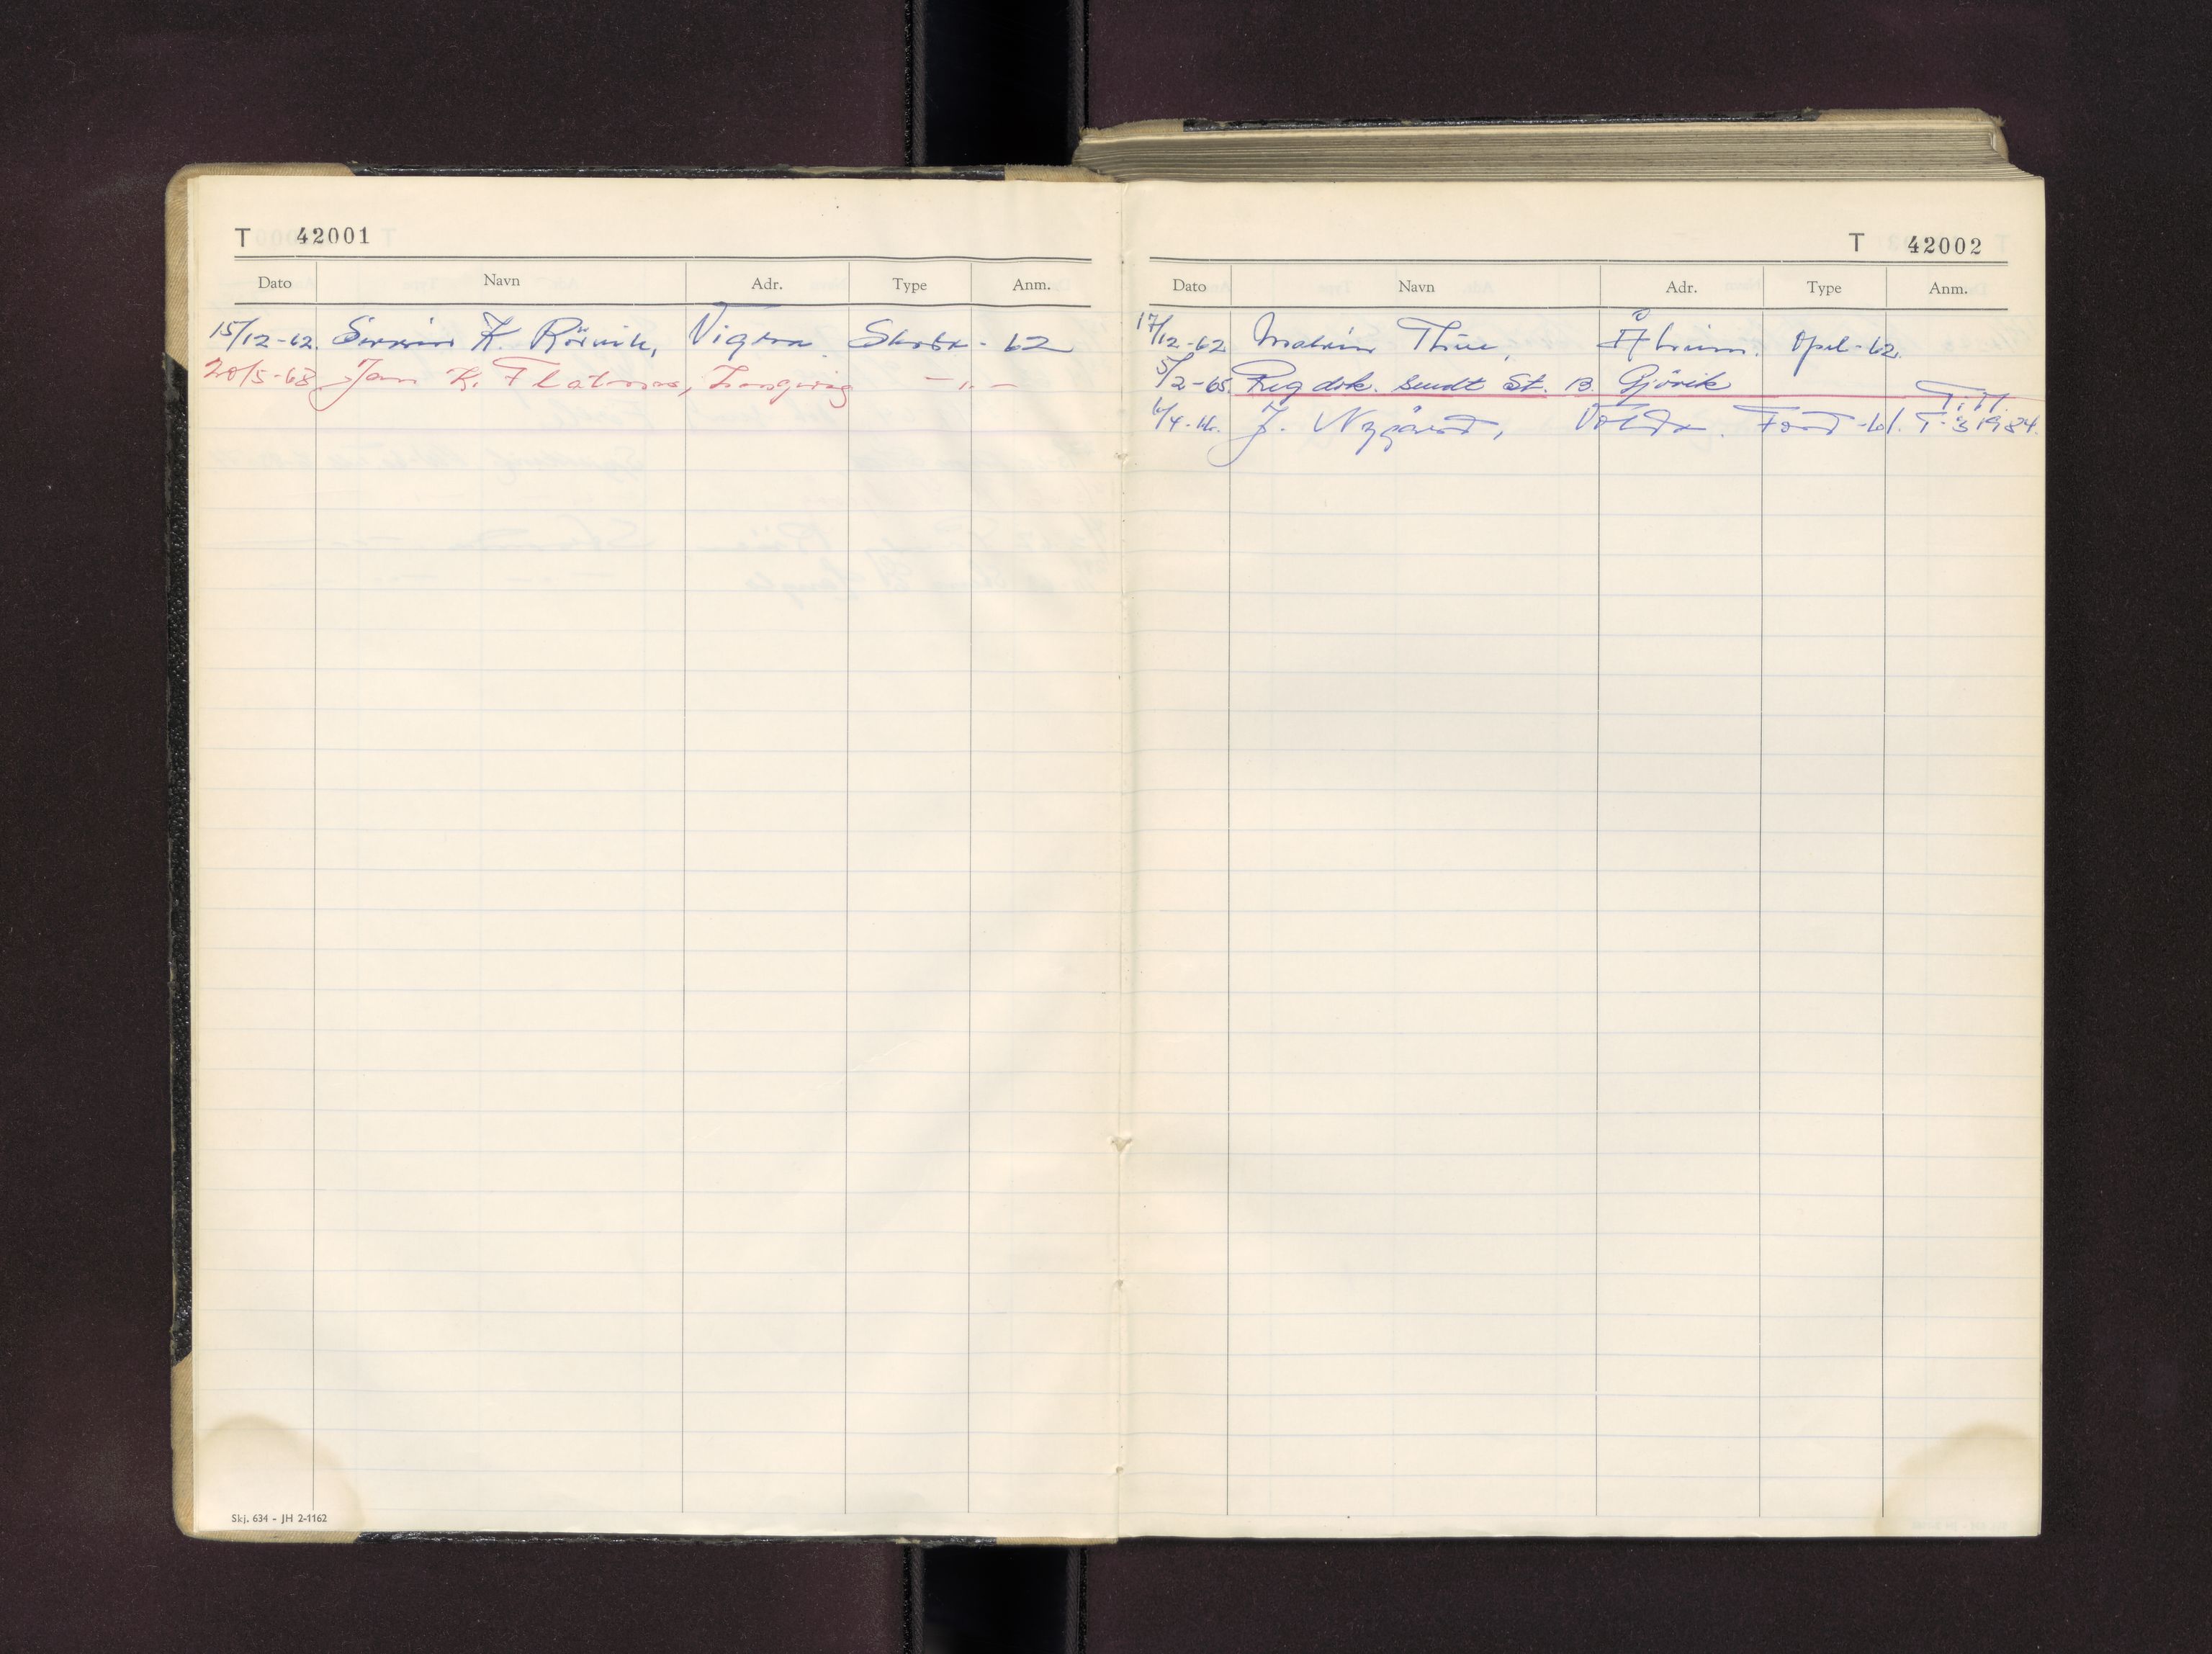 T 42001
Dato Navn Adr. Type Anm.
15/12-62. K. Rörvik, Vigra. Skoda - 62
20/5-63 Jan K. Flatmo, Longvag -„-
Skj. 634 - JH 2-1162
T 42002
Dato Navn Adr. Type Anm.
17/12-62 Thue, Åheim. Opel-62.
5/2-65. Reg dok. sendt St. B. Gjövik
T.H.
J. Nygård, Volda. Ford-61. T-31984.